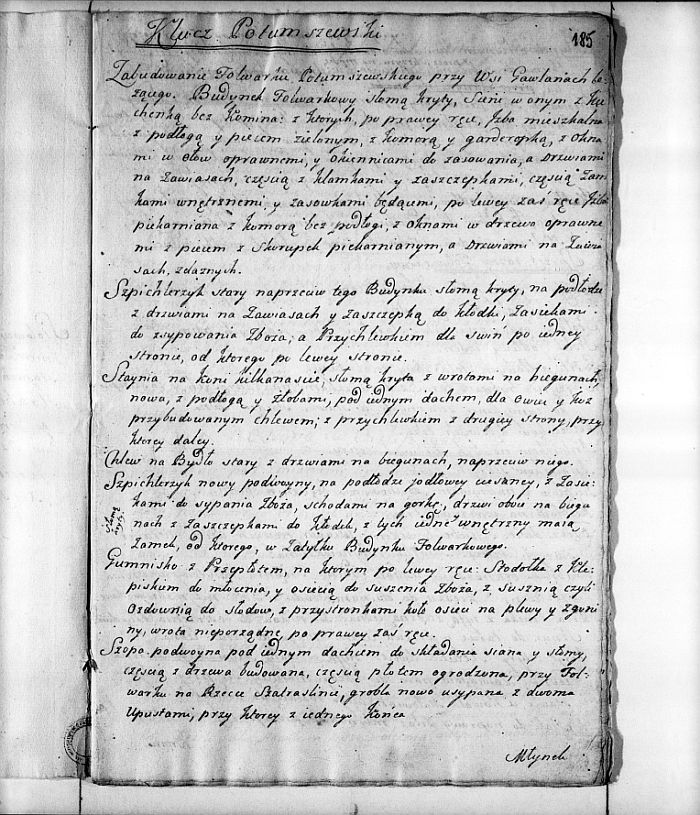 Klucz Potumszewski
185
Zabudowanie Folwarku Potumszewskiego przy Wsi Gawlanach le-
żącego. Budynek Folwarkowy słomą kryty, Sień w onym z Ku-
chenką bez Komina: z ktorych, po prawey ręce, Izba mieszkalna
z podłogą y piecem zielonym, z komorą y garderopką, z okna-
mi w ołow oprawnemi, y okiennicami do zasowania, a Drzwiami
na Zawiasach, częscią z klamkami y zaszczepkami, częscią Zam-
kami wnętrznemi y zasowkami będącemi, po lewey zaś ręce Izba
piekarniana z komorą bez podłogi, z oknami w drzewo oprawne-
mi z piecem z Skorupek piekarnianym, a Drzwiami na Zawia-
sach, zelaznych.
Szpichlerzyk stary naprzeciw tego Budynku słomą kryty, na podłodze
z drzwiami na Zawiasach y Zaszczepką do kłodki, Zasiekami
do zsypowania Zboża; a Przychlewkiem dla swiń po iedney
stronie, od ktorego po lewey stronie.
Staynia na Koni kilkanascie, słomą kryta z wrotami na biegunach,
nowa, z podłogą y żłobami, pod iednym dachem, dla Owiec y Koz
przybudowanym chlewem; z przychlewkiem z drugiey strony, przy
ktorey daley.
Chlew na Bydło stary z drzwiami na biegunach, naprzeciw niego.
Szpichlerzyk nowy podwoyny, na podłodze jodłowey ciesaney, z Zasie-
kami do sypania Zboża, schodami na gorkę, drzwi oboie na biegu-
nach z Zaszczepkami do kłodek, z tych iedne wnętrzny maią
słomą
kryty.
Zamek, od ktorego, w Zatyłku Budynku Folwarkowego.
Gumnisko z Przepłotem, na ktorym po lewey ręce: Stodołka z Kle-
piskiem do młocenia, y osiecią do suszenia Zboża, z susznią czyli
Ozdownią do słodow, z przystronkami koło osieci na plewy y zgoni-
ny, wrota nieporządne, po prawey zaś ręce.
Szopa podwoyna pod iednym dachem do składania siana y słomy,
częscią z drzewa budowana, częscią płotem ogrodzona, przy Fol-
warku na Rzece Szatraslinie, grobla nowo usypana z dwoma
Upustami, przy ktorey z iednego końca
Młynek